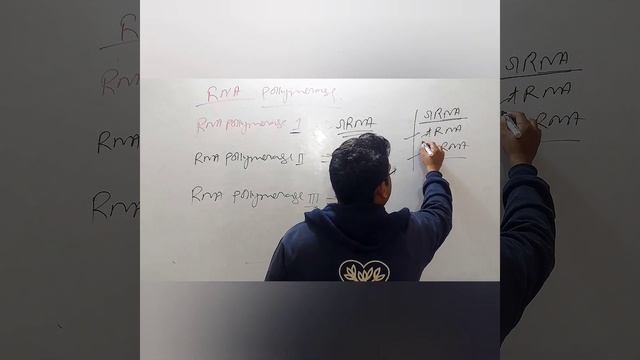 RNA Polymerase.
RNA Polymerase I rRNA
RNA Polymerase II
RNA Polymerase III
rRNA
tRNA
RNA